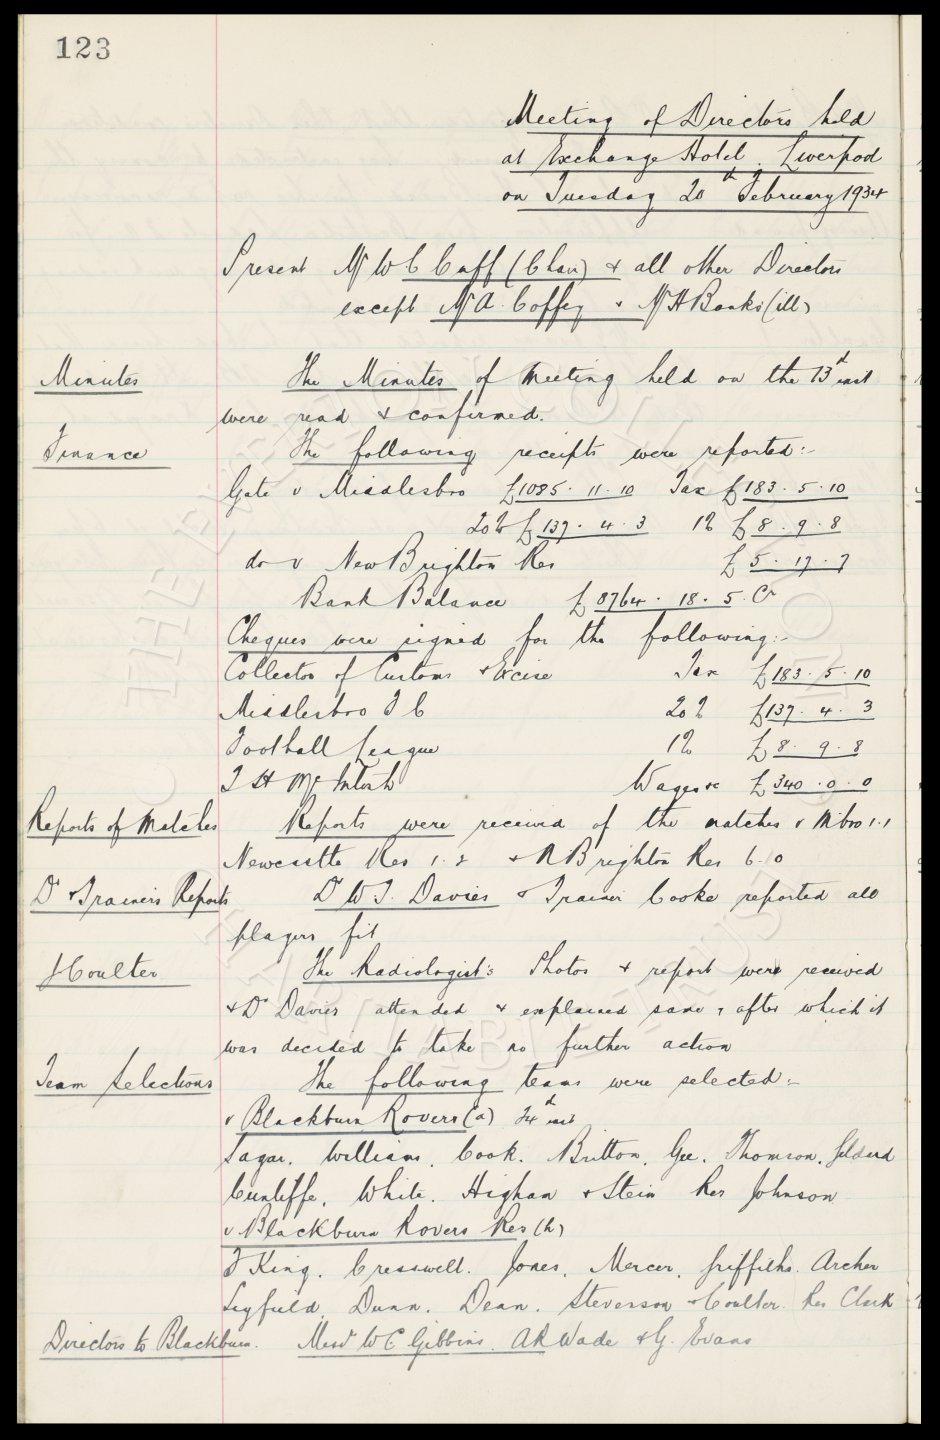 123
Meeting of Directors held
at Exchange Hotel. Liverpool
on Tuesday 20th February 1934
Present Mr W C Cuff (Chair) & all other Directors
except Mr A. Coffey & Mr H Banks (ill)
Minutes The Minutes of Meeting held on the 13th inst
were read & confirmed.
Finance The following receipts were reported:-
Gate v Middlesbro £1085. 11. 10 Tax £183. 5. 10
20% £137. 4. 3 1% £8. 9. 8
do v New Brighton Res £5. 17. 7
Bank Balance £8764. 18. 5. Cr
Cheques were signed for the following:-
Collector of Customs & Excise Tax £183. 5. 10
Middlesbro F C 20% £137. 4. 3
Football League 1% £8. 9. 8
T H McIntosh Wages &c £340. 0. 0
Reports of Matches Reports were received of the matches v M'bro 1.1
Newcastle Res 1.2 & N Brighton Res 6.0
Dr & Trainers Reports Dr W T. Davies & Trainer Cooke reported all
players fit
J Coulter The Radiologist's Photos & report were received
& Dr Davies attended & explained same, after which it
was decided to take no further action
Team Selections The following teams were selected:-
v Blackburn Rovers (a) 24th inst
Sagar. Williams. Cook. Britton. Gee. Thomson. Geldard
Cunliffe. White. Higham & Stein Res Johnson
v Blackburn Rovers Res (h)
F King. Cresswell. Jones. Mercer. Griffiths. Archer
Leyfield. Dunn. Dean. Stevenson & Coulter. Res Clark
Directors to Blackburn. Messrs W C Gibbins. A R Wade & G. Evans